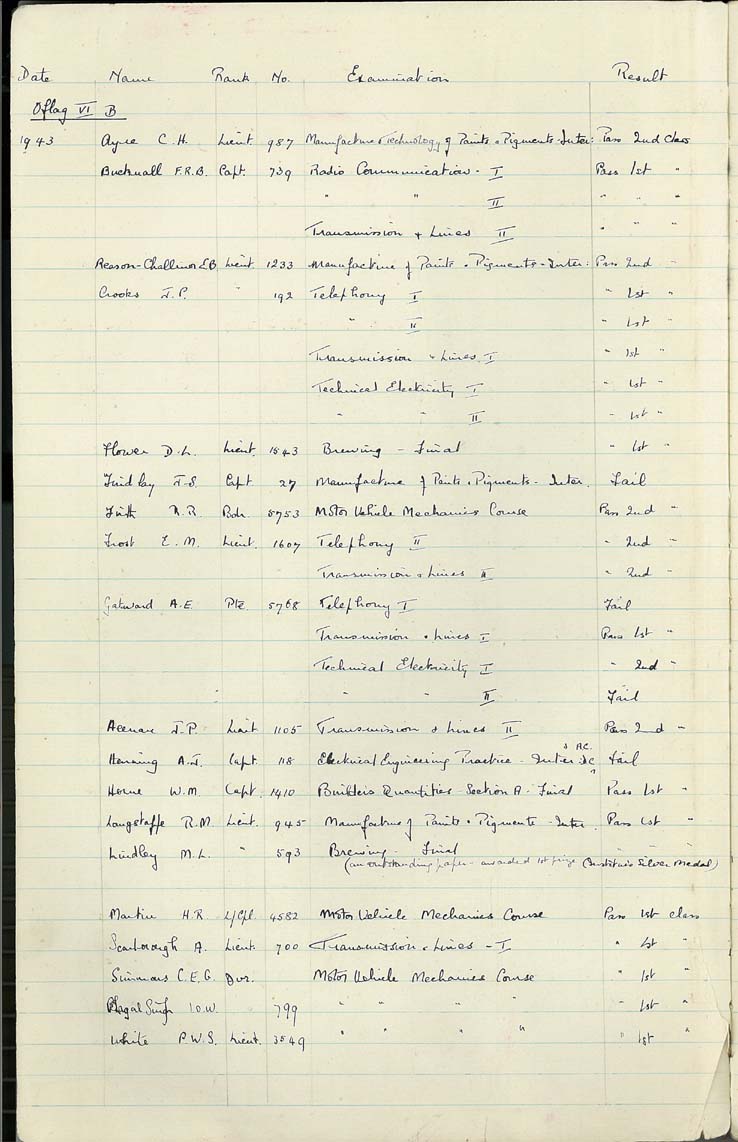 Date Name Rank No. Examination Result
Oflag VI B
1943 Ayre C.H. Lieut. 987 Manufacture & Technology of Paints & Pigments - Inter: Pass 2nd Class
Bucknall F.R.B. Capt. 739 Radio Communication - I Pass 1st "
" " II " " "
Transmission & Lines II " " "
Reason-Challinor E.B. Lieut. 1233 Manufacture of Paints & Pigments - Inter: Pass 2nd "
Crooks J.P. " 192 Telephony I " 1st "
" II " 1st "
Transmission & Lines I " 1st "
Technical Electricity I " 1st "
" " II " 1st "
Flower D.L. Lieut. 1543 Brewing - Final " 1st "
Findlay J.S. Capt. 27 Manufacture of Paints & Pigments - Inter. Fail
Firth R.R. Bdr. 5753 Motor Vehicle Mechanics Course Pass 2nd "
Frost E.M. Lieut. 1607 Telephony II " 2nd "
Transmission & Lines II " 2nd
Gatward A.E. Pte 5768 Telephony I Fail
Transmission & Lines I Pass 1st "
Technical Electricity I " 2nd "
" " II Fail
J.P. Lieut 1105 Transmission & Lines II Pass 2nd "
Henning A.J. Capt. 118 Electrical Engineering Practice - Inter DC & A.C. Fail
Horne W.M. Capt. 1410 Builders Quantities - Section A - Final Pass 1st "
Langstaffe R.M. Lieut. 945 Manufacture of Paints & Pigments - Inter. Pass 1st "
Lindley M.L. " 593 Brewing - Final " " "
(an outstanding paper - awarded 1st prize (Institute's Silver Medal)
Martin H.R. L/Cpl. 4582 Motor Vehicle Mechanics Course Pass 1st class
Scarborough A. Lieut. 700 Transmission & Lines - I " 1st "
Simmons C.E.G. Dvr. Motor Vehicle Mechanics Course " 1st "
Singh 799 " " " " " 1st "
White P.W.S. Lieut. 3549 " " " " " 1st "